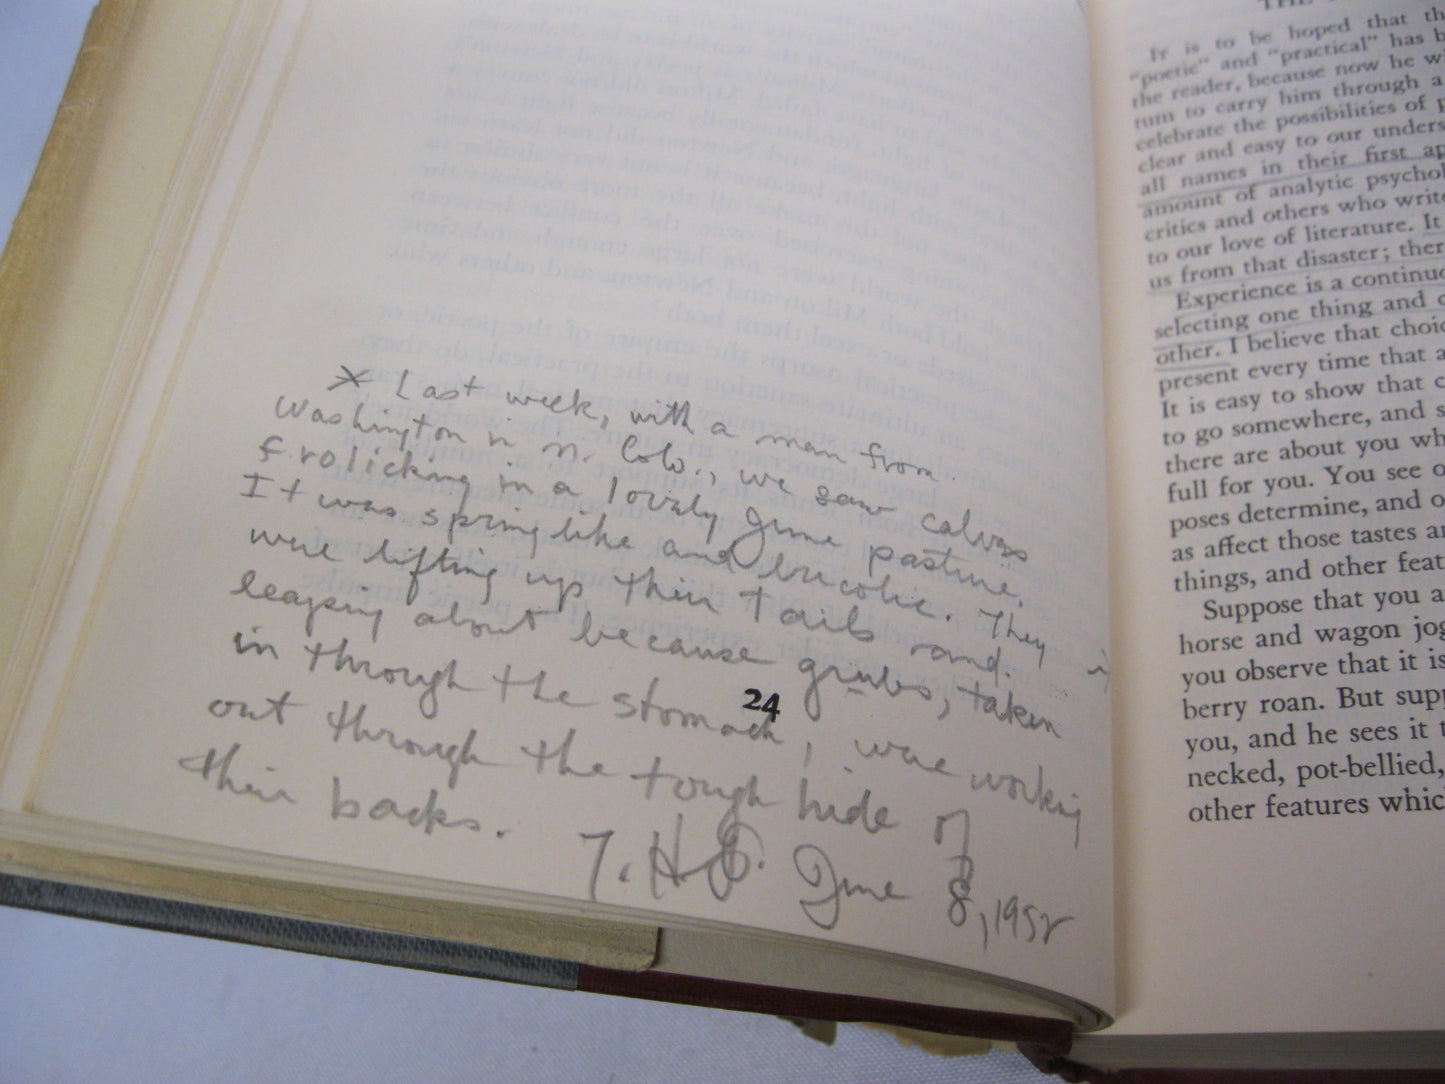 * Last week, with a man from
Washington in N. Colo., we saw calves
frolicking in a lovely June pasture.
It was springlike and bucolic. They
were lifting up their tails and
leaping about because grubs, taken
in through the stomach, were working
out through the tough hide of
their backs.
T. H. June 8, 1952
24
THE
It is to be hoped that th
"poetic" and "practical" has b
the reader, because now he wi
turn to carry him through a
celebrate the possibilities of p
clear and easy to our unders
all names in their first ap
amount of analytic psychol
critics and others who write
to our love of literature. It
us from that disaster; ther
Experience is a continuo
selecting one thing and
other. I believe that choic
present every time that a
It is easy to show that c
to go somewhere, and s
there are about you wh
full for you. You see o
poses determine, and o
as affect those tastes a
things, and other feat
Suppose that you a
horse and wagon jog
you observe that it is
berry roan. But supp
you, and he sees it t
necked, pot-bellied,
other features whic